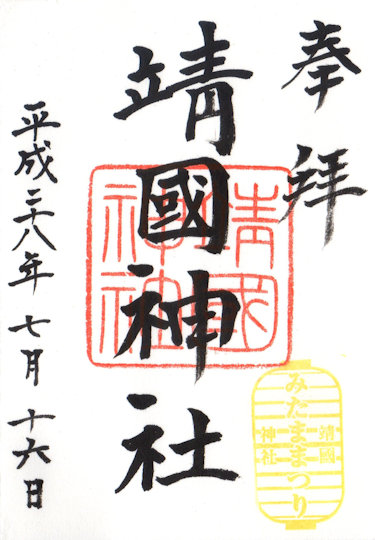 奉拝
靖國神社
靖國神社
平成二十八年七月十六日
みたままつり
靖國
神社